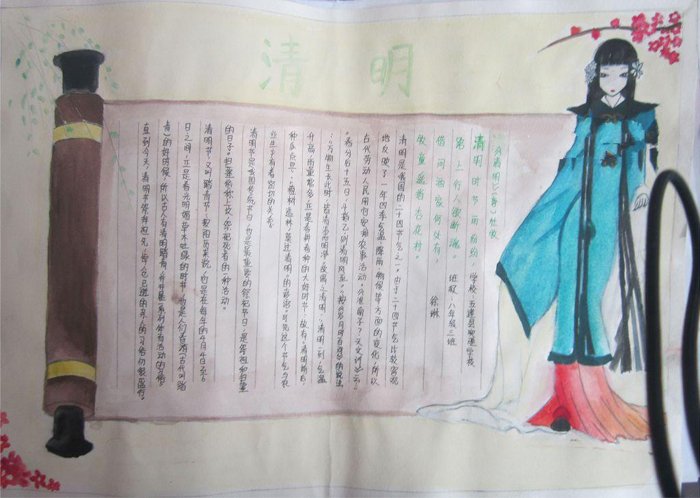 清明
《清明》(唐)杜牧
清明时节雨纷纷，学校：五莲县
路上行人欲断魂。班级：八年级二班
借问酒家何处有，徐琳
牧童遥指杏花村。
清明是我国的二十四节气之一。由于二十四节气比较客观
地反映了一年四季气温、降雨、物候等方面的变化，所以
古代劳动人民用它安排农事活动。《淮南子·天文训》云：
“春分后十五日，斗指乙，则清明风至。”按《岁时百问》的说法：
“万物生长此时，皆清洁而明净。故谓之清明。”清明一到，气温
升高，雨量增多，正是春耕春种的大好时节。故有“清明前后，
种瓜点豆”、“植树造林，莫过清明”的农谚。可见这个节气与农
业生产有着密切的关系。
清明节是我国传统节日，也是最重要的祭祀节日，是祭祖和扫墓
的日子。扫墓俗称上坟，祭祀死者的一种活动。
清明节，又叫踏青节，按阳历来说，它是在每年的4月4日至6
日之间，正是春光明媚草木吐绿的时节，也是人们春游（古代叫踏
青）的好时候，所以古人有清明踏青，并开展一系列体育活动的习俗。
直到今天，清明节祭拜祖先，悼念已逝的亲人的习俗仍很盛行。